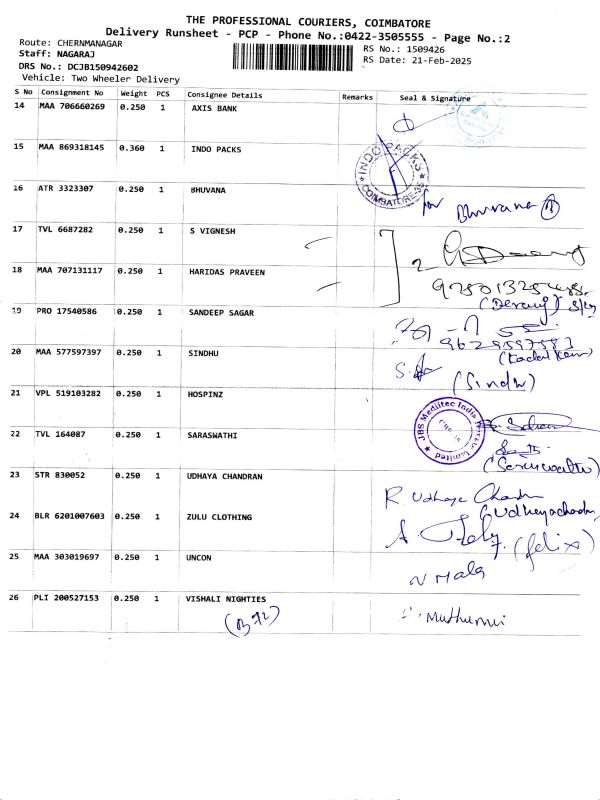 THE PROFESSIONAL COURIERS, COIMBATORE
Delivery Runsheet - PCP - Phone No.:0422-3505555 - Page No.:2
Route: CHERNMANAGAR
RS No.: 1509426
Staff: NAGARAJ
RS Date: 21-Feb-2025
DRS No.: DCJB150942602
Vehicle: Two Wheeler Delivery
S No Consignment No Weight PCS Consignee Details Remarks Seal & Signature
14 MAA 706660269 0.250 1 AXIS BANK
15 MAA 869318145 0.360 1 INDO PACKS
INDO PACKS
COIMBATORE-35
16 ATR 3323307 0.250 1 BHUVANA
for Bhuvana
17 TVL 6687282 0.250 1 S VIGNESH
2
18 MAA 707131117 0.250 1 HARIDAS PRAVEEN
19 PRO 17540586 0.250 1 SANDEEP SAGAR
9629597583
20 MAA 577597397 0.250 1 SINDHU
(Sindhu)
21 VPL 519103282 0.250 1 HOSPINZ
JBS Meditec India Private Limited
22 TVL 164087 0.250 1 SARASWATHI
23 STR 830052 0.250 1 UDHAYA CHANDRAN
R. Udhaya Chandran
24 BLR 6201007603 0.250 1 ZULU CLOTHING
(felix)
25 MAA 303019697 0.250 1 UNCON
N Mala
26 PLI 200527153 0.250 1 VISHALI NIGHTIES